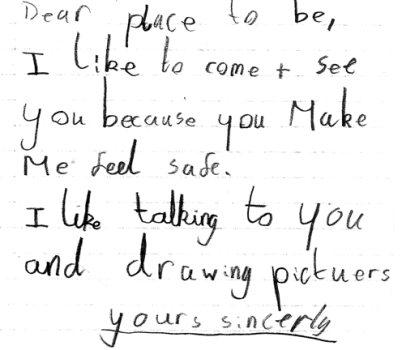 Dear place to be,
I like to come + see
you because you Make
Me feel safe.
I like talking to you
and drawing pictuers
yours sincerly